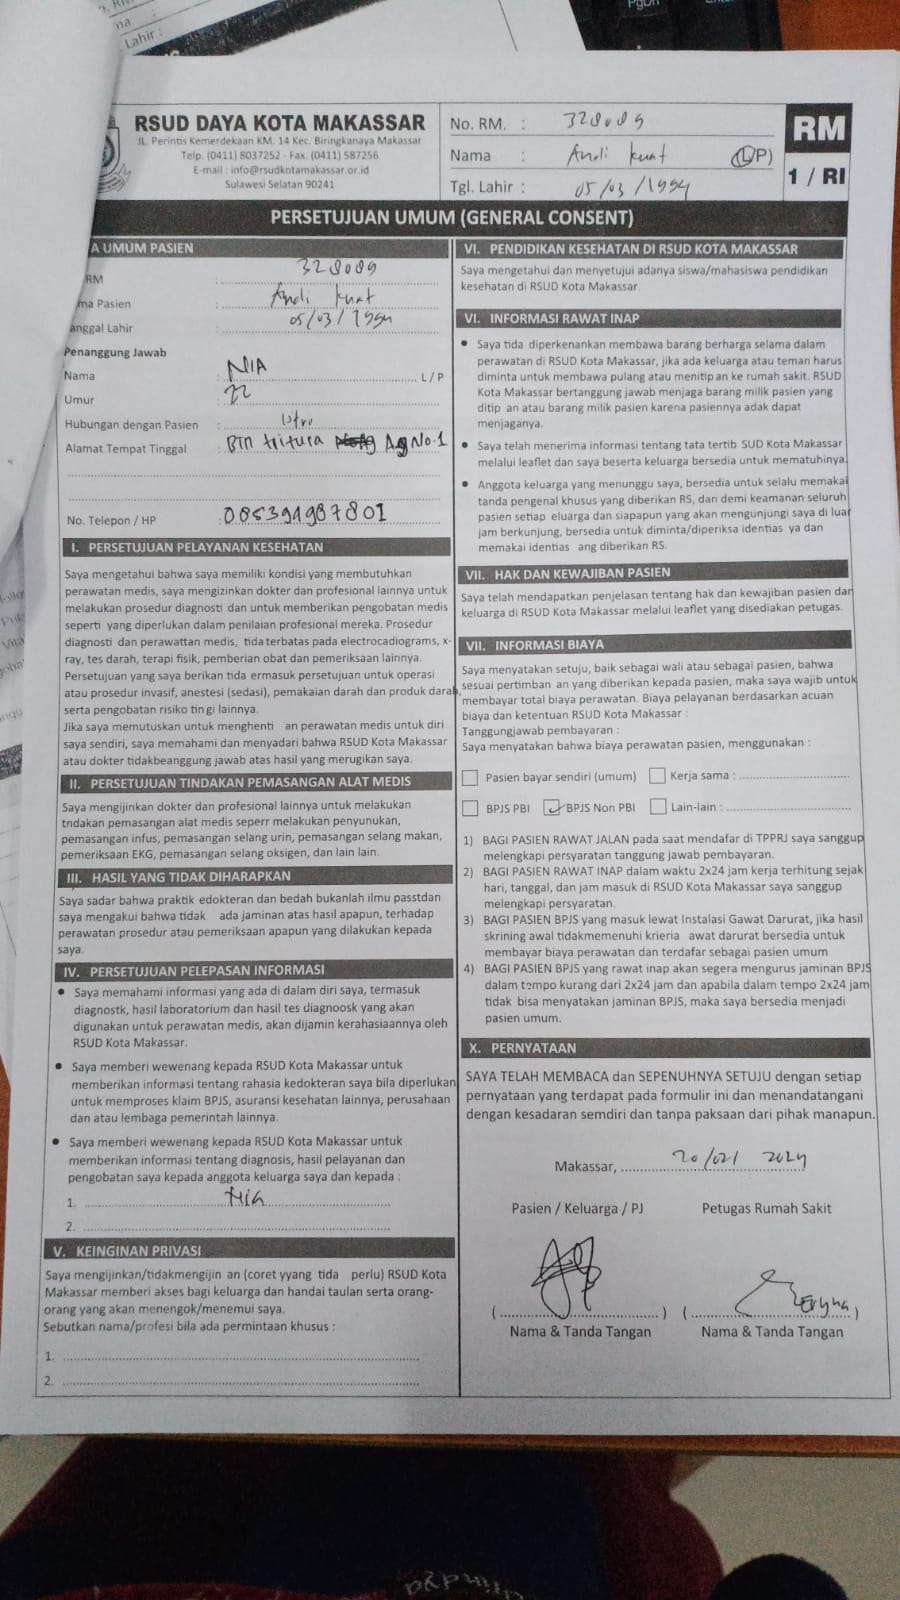 RSUD DAYA KOTA MAKASSAR
JL. Perintis Kemerdekaan KM. 14 Kec. Biringkanaya Makassar
Telp. (0411) 8037252 - Fax. (0411) 587256
E-mail : info@rsudkotamakassar.or.id
Sulawesi Selatan 90241
No. RM. : 328089
Nama : Andi Kuat (L/P)
Tgl. Lahir : 05/03/1994
RM
1 / RI
PERSETUJUAN UMUM (GENERAL CONSENT)
A UMUM PASIEN
RM : 328089
ma Pasien : Andi Kuat
anggal Lahir : 05/03/1994
Penanggung Jawab
Nama : NIA L / P
Umur : 22
Hubungan dengan Pasien : Istri
Alamat Tempat Tinggal : BTN tritura A9 No.1
No. Telepon / HP : 085394987801
I. PERSETUJUAN PELAYANAN KESEHATAN
Saya mengetahui bahwa saya memiliki kondisi yang membutuhkan
perawatan medis, saya mengizinkan dokter dan profesional lainnya untuk
melakukan prosedur diagnosti dan untuk memberikan pengobatan medis
seperti yang diperlukan dalam penilaian profesional mereka. Prosedur
diagnosti dan perawattan medis, tida terbatas pada electrocadiograms, x-
ray, tes darah, terapi fisik, pemberian obat dan pemeriksaan lainnya.
Persetujuan yang saya berikan tida ermasuk persetujuan untuk operasi
atau prosedur invasif, anestesi (sedasi), pemakaian darah dan produk darah,
serta pengobatan risiko tin gi lainnya.
Jika saya memutuskan untuk menghenti an perawatan medis untuk diri
saya sendiri, saya memahami dan menyadari bahwa RSUD Kota Makassar
atau dokter tidakbeanggung jawab atas hasil yang merugikan saya.
II. PERSETUJUAN TINDAKAN PEMASANGAN ALAT MEDIS
Saya mengijinkan dokter dan profesional lainnya untuk melakukan
tndakan pemasangan alat medis seperr melakukan penyunukan,
pemasangan infus, pemasangan selang urin, pemasangan selang makan,
pemeriksaan EKG, pemasangan selang oksigen, dan lain lain.
III. HASIL YANG TIDAK DIHARAPKAN
Saya sadar bahwa praktik edokteran dan bedah bukanlah ilmu passtdan
saya mengakui bahwa tidak ada jaminan atas hasil apapun, terhadap
perawatan prosedur atau pemeriksaan apapun yang dilakukan kepada
saya.
IV. PERSETUJUAN PELEPASAN INFORMASI
• Saya memahami informasi yang ada di dalam diri saya, termasuk
diagnostk, hasil laboratorium dan hasil tes diagnoosk yang akan
digunakan untuk perawatan medis, akan dijamin kerahasiaannya oleh
RSUD Kota Makassar.
• Saya memberi wewenang kepada RSUD Kota Makassar untuk
memberikan informasi tentang rahasia kedokteran saya bila diperlukan
untuk memproses klaim BPJS, asuransi kesehatan lainnya, perusahaan
dan atau lembaga pemerintah lainnya.
• Saya memberi wewenang kepada RSUD Kota Makassar untuk
memberikan informasi tentang diagnosis, hasil pelayanan dan
pengobatan saya kepada anggota keluarga saya dan kepada :
1. Nia
2.
V. KEINGINAN PRIVASI
Saya mengijinkan/tidakmengijin an (coret yyang tida perlu) RSUD Kota
Makassar memberi akses bagi keluarga dan handai taulan serta orang-
orang yang akan menengok/menemui saya.
Sebutkan nama/profesi bila ada permintaan khusus :
1.
2.
VI. PENDIDIKAN KESEHATAN DI RSUD KOTA MAKASSAR
Saya mengetahui dan menyetujui adanya siswa/mahasiswa pendidikan
kesehatan di RSUD Kota Makassar.
VI. INFORMASI RAWAT INAP
• Saya tida diperkenankan membawa barang berharga selama dalam
perawatan di RSUD Kota Makassar, jika ada keluarga atau teman harus
diminta untuk membawa pulang atau menitip an ke rumah sakit. RSUD
Kota Makassar bertanggung jawab menjaga barang milik pasien yang
ditip an atau barang milik pasien karena pasiennya adak dapat
menjaganya.
• Saya telah menerima informasi tentang tata tertib SUD Kota Makassar
melalui leaflet dan saya beserta keluarga bersedia untuk mematuhinya.
• Anggota keluarga yang menunggu saya, bersedia untuk selalu memakai
tanda pengenal khusus yang diberikan RS, dan demi keamanan seluruh
pasien setiap eluarga dan siapapun yang akan mengunjungi saya di luar
jam berkunjung, bersedia untuk diminta/diperiksa identias ya dan
memakai identias ang diberikan RS.
VII. HAK DAN KEWAJIBAN PASIEN
Saya telah mendapatkan penjelasan tentang hak dan kewajiban pasien dan
keluarga di RSUD Kota Makassar melalui leaflet yang disediakan petugas.
VII. INFORMASI BIAYA
Saya menyatakan setuju, baik sebagai wali atau sebagai pasien, bahwa
sesuai pertimban an yang diberikan kepada pasien, maka saya wajib untuk
membayar total biaya perawatan. Biaya pelayanan berdasarkan acuan
biaya dan ketentuan RSUD Kota Makassar :
Tanggungjawab pembayaran :
Saya menyatakan bahwa biaya perawatan pasien, menggunakan :
Pasien bayar sendiri (umum) Kerja sama :
BPJS PBI ✓ BPJS Non PBI Lain-lain :
1) BAGI PASIEN RAWAT JALAN pada saat mendafar di TPPRJ saya sanggup
melengkapi persyaratan tanggung jawab pembayaran.
2) BAGI PASIEN RAWAT INAP dalam waktu 2x24 jam kerja terhitung sejak
hari, tanggal, dan jam masuk di RSUD Kota Makassar saya sanggup
melengkapi persyaratan.
3) BAGI PASIEN BPJS yang masuk lewat Instalasi Gawat Darurat, jika hasil
skrining awal tidakmemenuhi krieria awat darurat bersedia untuk
membayar biaya perawatan dan terdafar sebagai pasien umum
4) BAGI PASIEN BPJS yang rawat inap akan segera mengurus jaminan BPJS
dalam tempo kurang dari 2x24 jam dan apabila dalam tempo 2x24 jam
tidak bisa menyatakan jaminan BPJS, maka saya bersedia menjadi
pasien umum.
X. PERNYATAAN
SAYA TELAH MEMBACA dan SEPENUHNYA SETUJU dengan setiap
pernyataan yang terdapat pada formulir ini dan menandatangani
dengan kesadaran semdiri dan tanpa paksaan dari pihak manapun.
Makassar, 20/02/ 2024
Pasien / Keluarga / PJ Petugas Rumah Sakit
Nama & Tanda Tangan Nama & Tanda Tangan